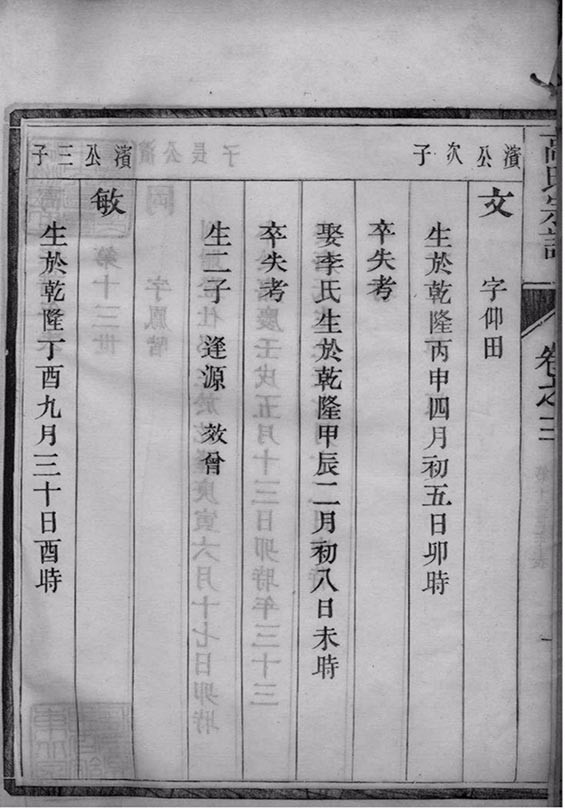 高氏宗譜
卷之三
濱公次子
文 字仰田
生於乾隆丙申四月初五日卯時
卒失考
娶李氏生於乾隆甲辰二月初八日未時
卒失考
生二子 逢源 效曾
濱公三子
敏
生於乾隆丁酉九月三十日酉時